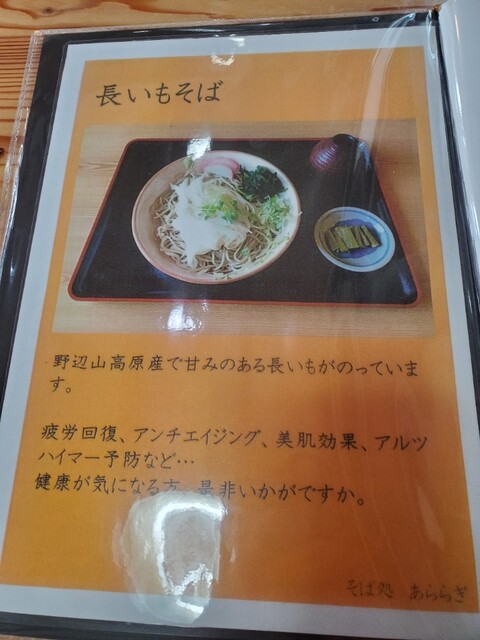 長いもそば
野辺山高原産で甘みのある長いもがのっていま
す。
疲労回復、アンチエイジング、美肌効果、アルツ
ハイマー予防など…
健康が気になる方、是非いかがですか。
そば処 あららぎ